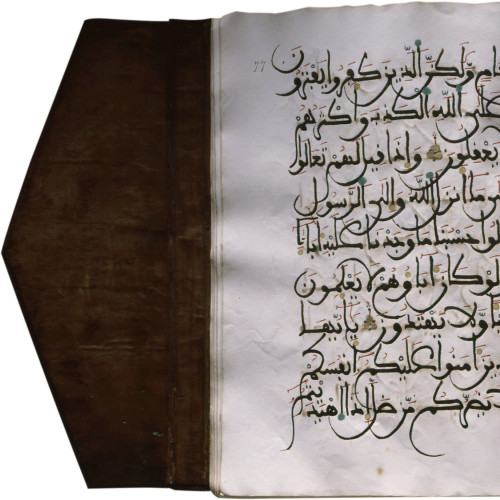 77
ام ولكن الذين كفروا يفترون
على الله الكذب واكثرهم
يعقلون واذا قيل لهم تعالوا
ما انزل الله والى الرسول
لوا حسبنا ما وجدنا عليه اباءنا
لو كان اباوهم لا يعلمون
ا ولا يهتدون يايها
ين امنوا عليكم انفسكم
يضركم من ضل اذا اهتديتم